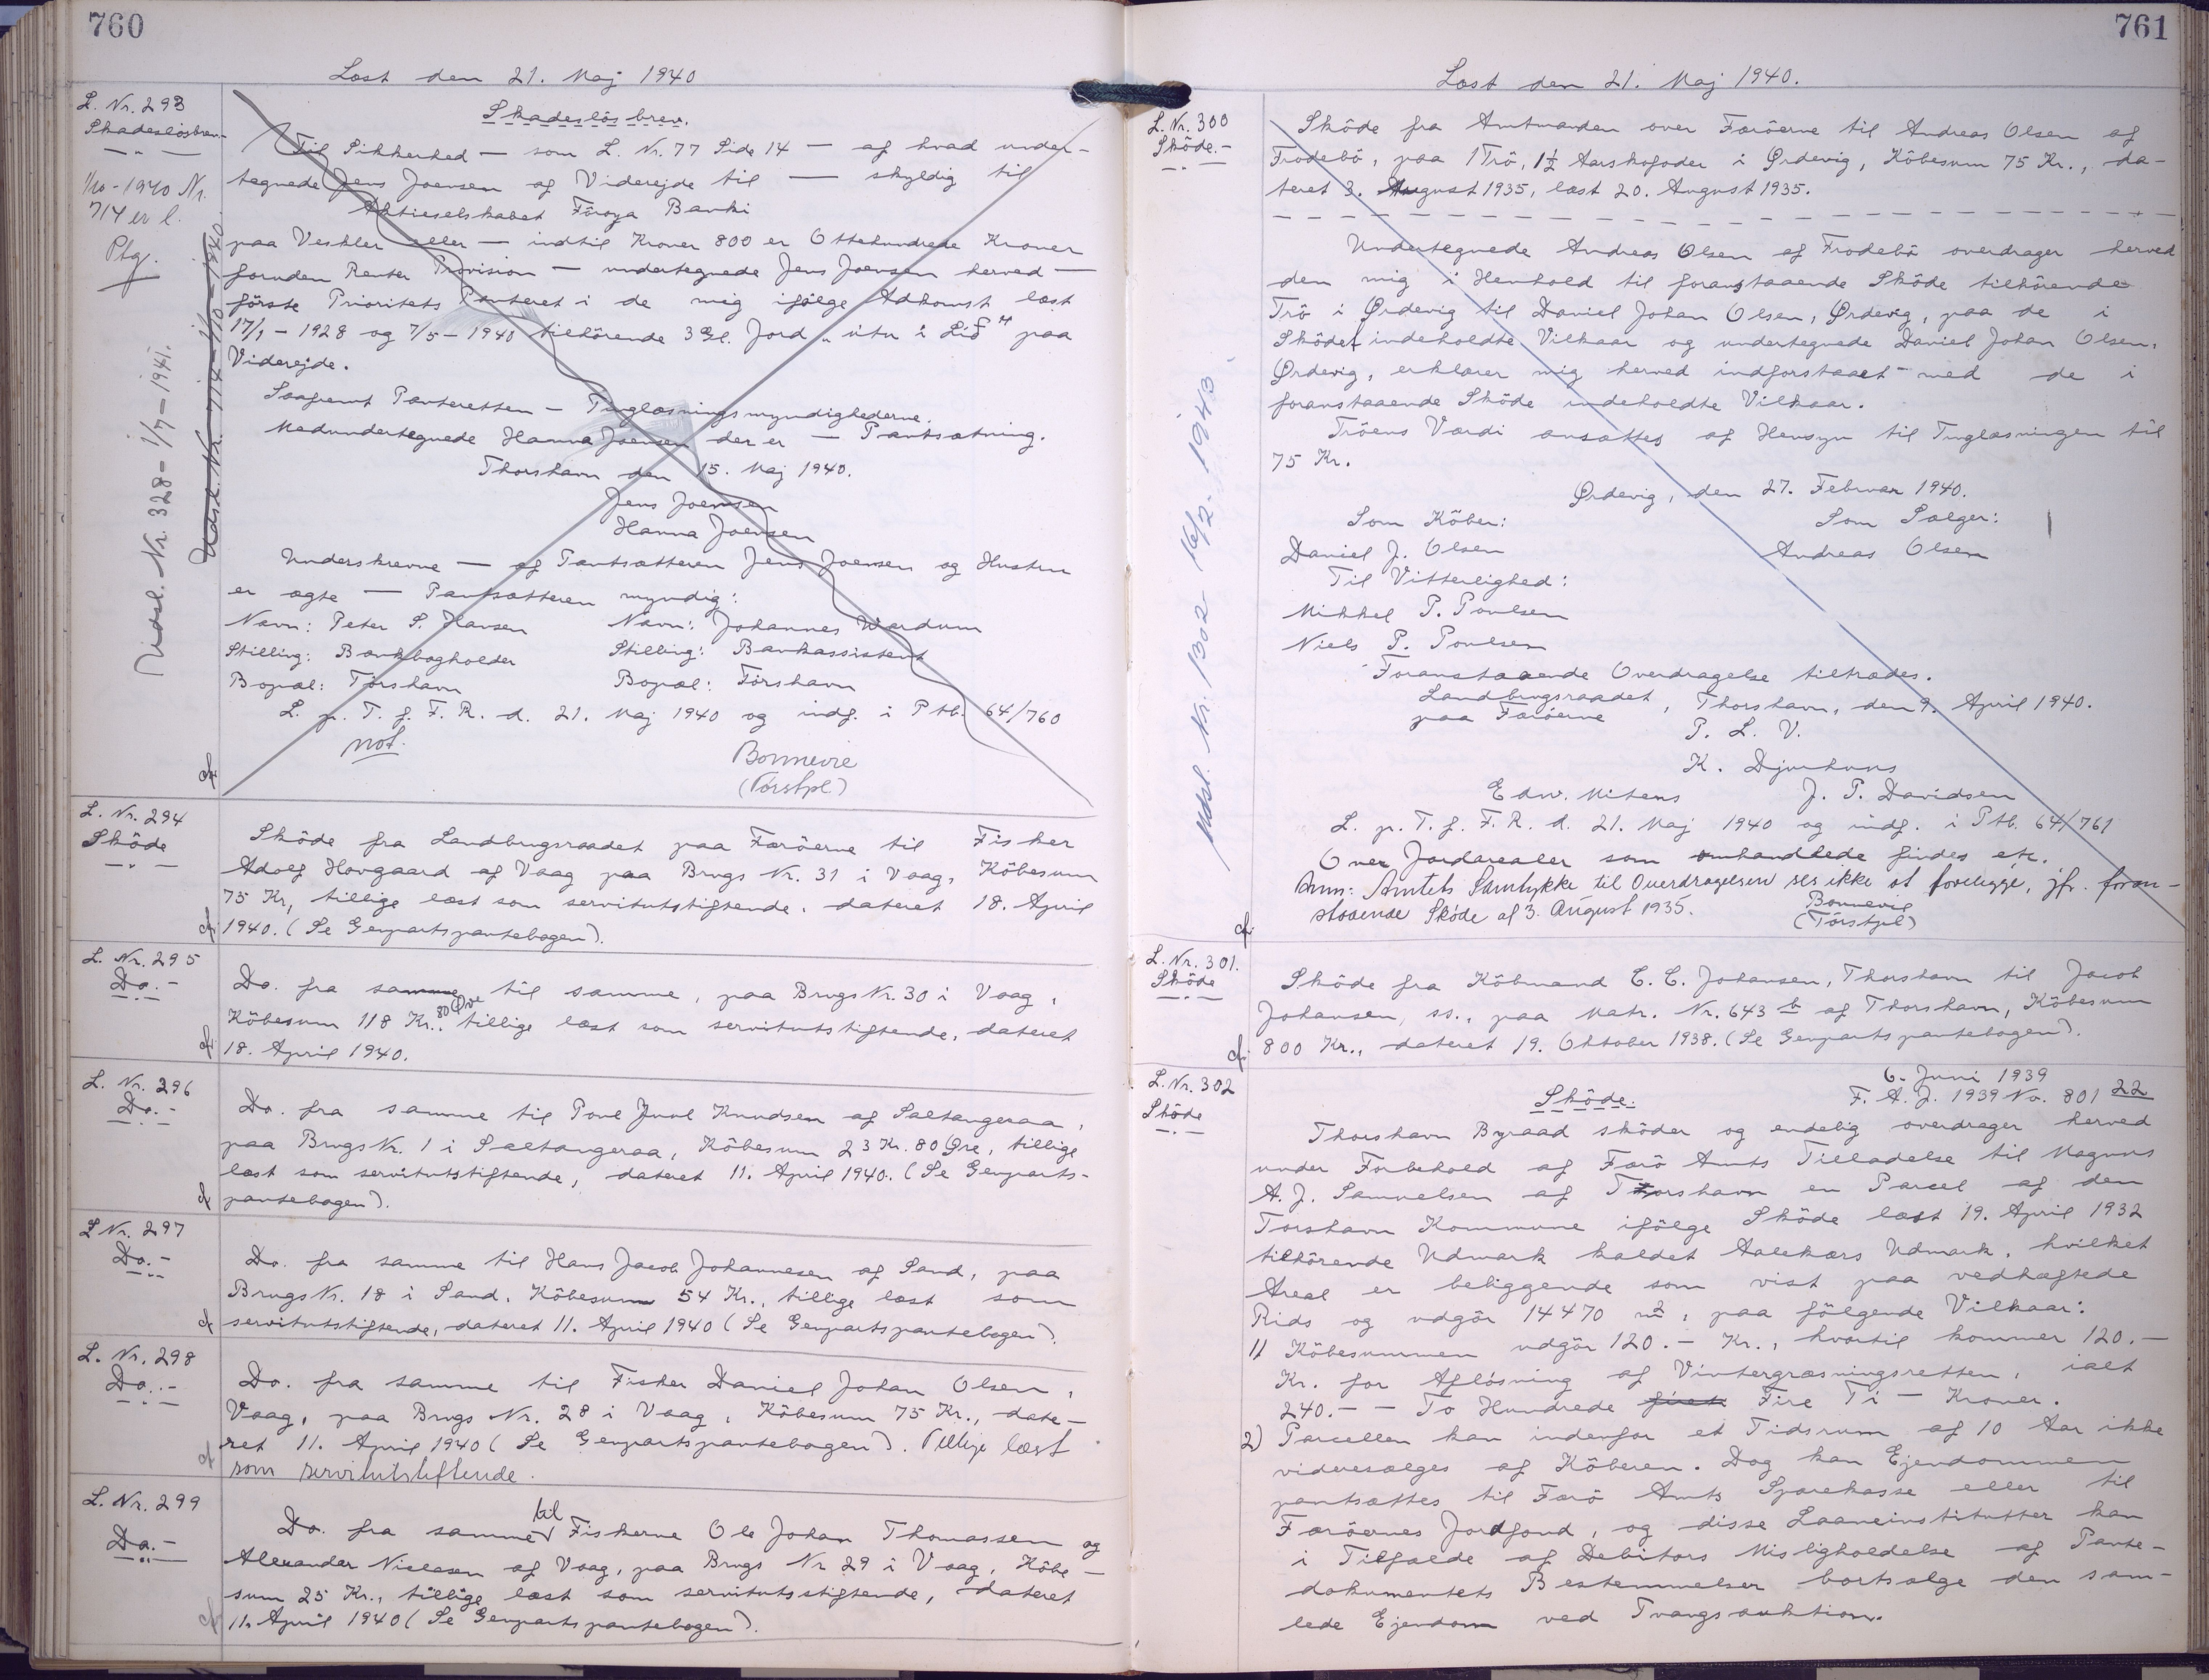 760
Læst den 21. Maj 1940
L. Nr. 293
Skadeslösbrev.
1/10 - 1940 Nr.
714 er l.
Ptg.
Udsl. Nr. 714 - 1/10 - 1940.
Udsl. Nr. 328 - 1/7 - 1941.
Skadeslösbrev.
Til Sikkerhed — som L. Nr. 77 Side 14 — af hvad under-
tegnede Jens Joensen af Viderejde til — skyldig til
Aktieselskabet Föroya Banki
paa Veksler eller — indtil Kroner 800 er Ottehundrede Kroner
foruden Renter Provision — undertegnede Jens Joensen herved —
förste Prioritets Panteret i de mig ifölge Adkomst læst
17/1 - 1928 og 7/5 - 1940 tilhörende 3 Gl. Jord „útu í Lið" paa
Viderejde.
Saafremt Panteretten — Tinglæsningsmyndighederne.
Medundertegnede Hanna Joensen der er — Pantsætning.
Thorshavn den 15. Maj 1940.
Jens Joensen
Hanna Joensen
Underskrevne — af Pantsætteren Jens Joensen og Hustru
er ægte — Pantsætteren myndig:
Navn: Peter S. Hansen Navn: Johannes Wardum
Stilling: Bankbogholder Stilling: Bankassistent
Bopæl: Tórshavn Bopæl: Tórshavn
L. p. T. f. F. R. d. 21. Maj 1940 og indf. i Ptb. 64/760
not.
Bonnevie
(Tórsfpl)
L. Nr. 294
Sköde
Sköde fra Landbrugsraadet paa Færöerne til Fisker
Adolf Hovgaard af Vaag paa Brugs Nr. 31 i Vaag, Köbesum
75 Kr., tillige læst som servitutstiftende, dateret 18. April
1940. (Se Genpartspantebogen).
L. Nr. 295
Do.-
Do. fra samme til samme, paa Brugs Nr. 30 i Vaag,
Köbesum 118 Kr. 80 Øre tillige læst som servitutstiftende, dateret
18. April 1940.
L. Nr. 296
Do.-
Do. fra samme til Poul Juul Knudsen af Saltangeraa,
paa Brugs Nr. 1 i Saltangeraa, Köbesum 23 Kr. 80 Øre, tillige
læst som servitutstiftende, dateret 11. April 1940. (Se Genparts-
pantebogen).
L Nr. 297
Do.-
Do. fra samme til Hans Jacob Johannesen af Sand, paa
Brugs Nr. 18 i Sand. Köbesum 54 Kr., tillige læst som
servitutstiftende, dateret 11. April 1940 (Se Genpartspantebogen).
L. Nr. 298
Do.-
Do. fra samme til Fisker Daniel Johan Olsen,
Vaag, paa Brugs Nr. 28 i Vaag, Köbesum 75 Kr., date-
ret 11. April 1940 (Se Genpartspantebogen). Tillige læst
som servitutstiftende.
L. Nr. 299
Do.-
Do. fra samme til Fiskerne Ole Johan Thomassen og
Alexander Nielsen af Vaag, paa Brugs Nr 29 i Vaag, Köbe-
sum 25 Kr., tillige læst som servitutsstiftende, dateret
11. April 1940 (Se Genpartspantebogen).
761
Læst den 21. Maj 1940.
L. Nr. 300
Sköde.-
Udsl. Nr. 1302 - 16/2 - 1943
Sköde fra Amtmanden over Færöerne til Andreas Olsen af
Frodebö, paa 1 Trö, 1½ Aarskofoder i Ørdevig, Köbesum 75 Kr., da-
teret 3. August 1935, læst 20. August 1935.
Undertegnede Andreas Olsen af Frodebö overdrager herved
den mig i Henhold til foranstaaende Sköde tilhörende
Trö i Ørdevig til Daniel Johan Olsen, Ørdevig, paa de i
Sködet indeholdte Vilkaar og undertegnede Daniel Johan Olsen,
Ørdevig, erklærer mig herved indforstaaet med de i
foranstaaende Sköde indeholdte Vilkaar.
Tröens Værdi ansættes af Hensyn til Tinglæsningen til
75 Kr.
Ørdevig, den 27. Februar 1940.
Som Köber: Som Sælger:
Daniel J. Olsen Andreas Olsen
Til Vitterlighed:
Mikkel P. Poulsen
Niels P. Poulsen
Foranstaaende Overdragelse tiltrædes.
Landbrugsraadet, Thorshavn, den 9. April 1940.
paa Færöerne
P. L. V.
K. Djurhuus
Edw. Mitens J. P. Davidsen
L. p. T. f. F. R. d. 21. Maj 1940 og indf. i Ptb. 64/761
Over Jordarealer som omhandlede findes etc.
Anm: Amtets Samtykke til Overdragelsen ses ikke at foreligge, jfr. foran-
staaende Sköde af 3. August 1935.
Bonnevie
(Tórsfpl)
L. Nr. 301.
Sköde
Sköde fra Köbmand C. C. Johansen, Thorshavn til Jacob
Johansen, ss., paa Matr. Nr. 643 b af Thorshavn, Köbesum
800 Kr., dateret 19. Oktober 1938. (Se Genpartspantebogen).
L. Nr. 302
Sköde
6. Juni 1939
Sköde. F. A. J. 1939 No. 801 22
Thorshavn Byraad sköder og endelig overdrager herved
under Forbehold af Færö Amts Tilladelse til Magnus
A. J. Samuelsen af Torshavn en Parcel af den
Torshavn Kommune ifölge Sköde læst 19. April 1932
tilhörende Udmark kaldet Aalekærs Udmark, hvilket
Areal er beliggende som vist paa vedhæftede
Rids og udgör 14470 m², paa fölgende Vilkaar:
1) Köbesummen udgör 120.- Kr., hvortil kommer 120.-
Kr. for Aflösning af Vintergræsningsretten, ialt
240.- - To Hundrede firet Fire Ti - Kroner.
2) Parcellen kan indenfor et Tidsrum af 10 Aar ikke
videresælges af Köberen. Dog kan Ejendommen
pantsættes til Færö Amts Sparekasse eller til
Færöernes Jordfond, og disse Laaneinstitutter kan
i Tilfælde af Debitors Misligholdelse af Pante-
dokumentets Bestemmelser bortsælge den sam-
lede Ejendom ved Tvangsauktion.